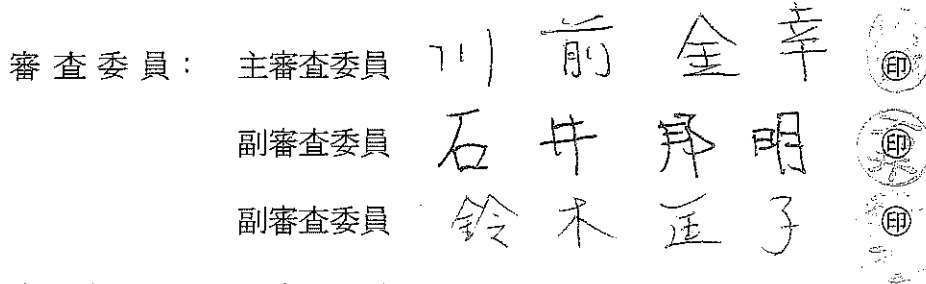 審査委員: 主審査委員 川前金幸 ㊞
副審査委員 石井邦明 ㊞
副審査委員 鈴木匡子 ㊞